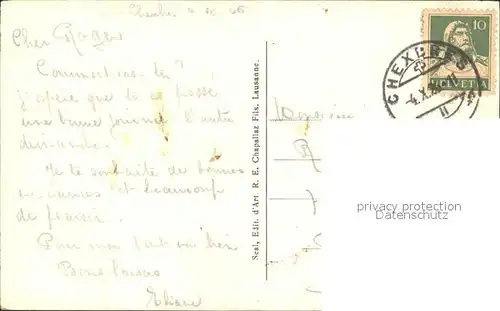 Cher Roger
Comment vas-tu?
j'espère que tu as passé
une bonne journée l'autre
dimanche.
Je te souhaite de bonnes
vacances et beaucoup
de plaisir.
Pour moi tout va bien
Bons baisers
Eliane
Scal, Edit. d'Art R. E. Chapallaz Fils, Lausanne.
Monsieur
10
HELVETIA
CHEXBRES
privacy protection
Datenschutz